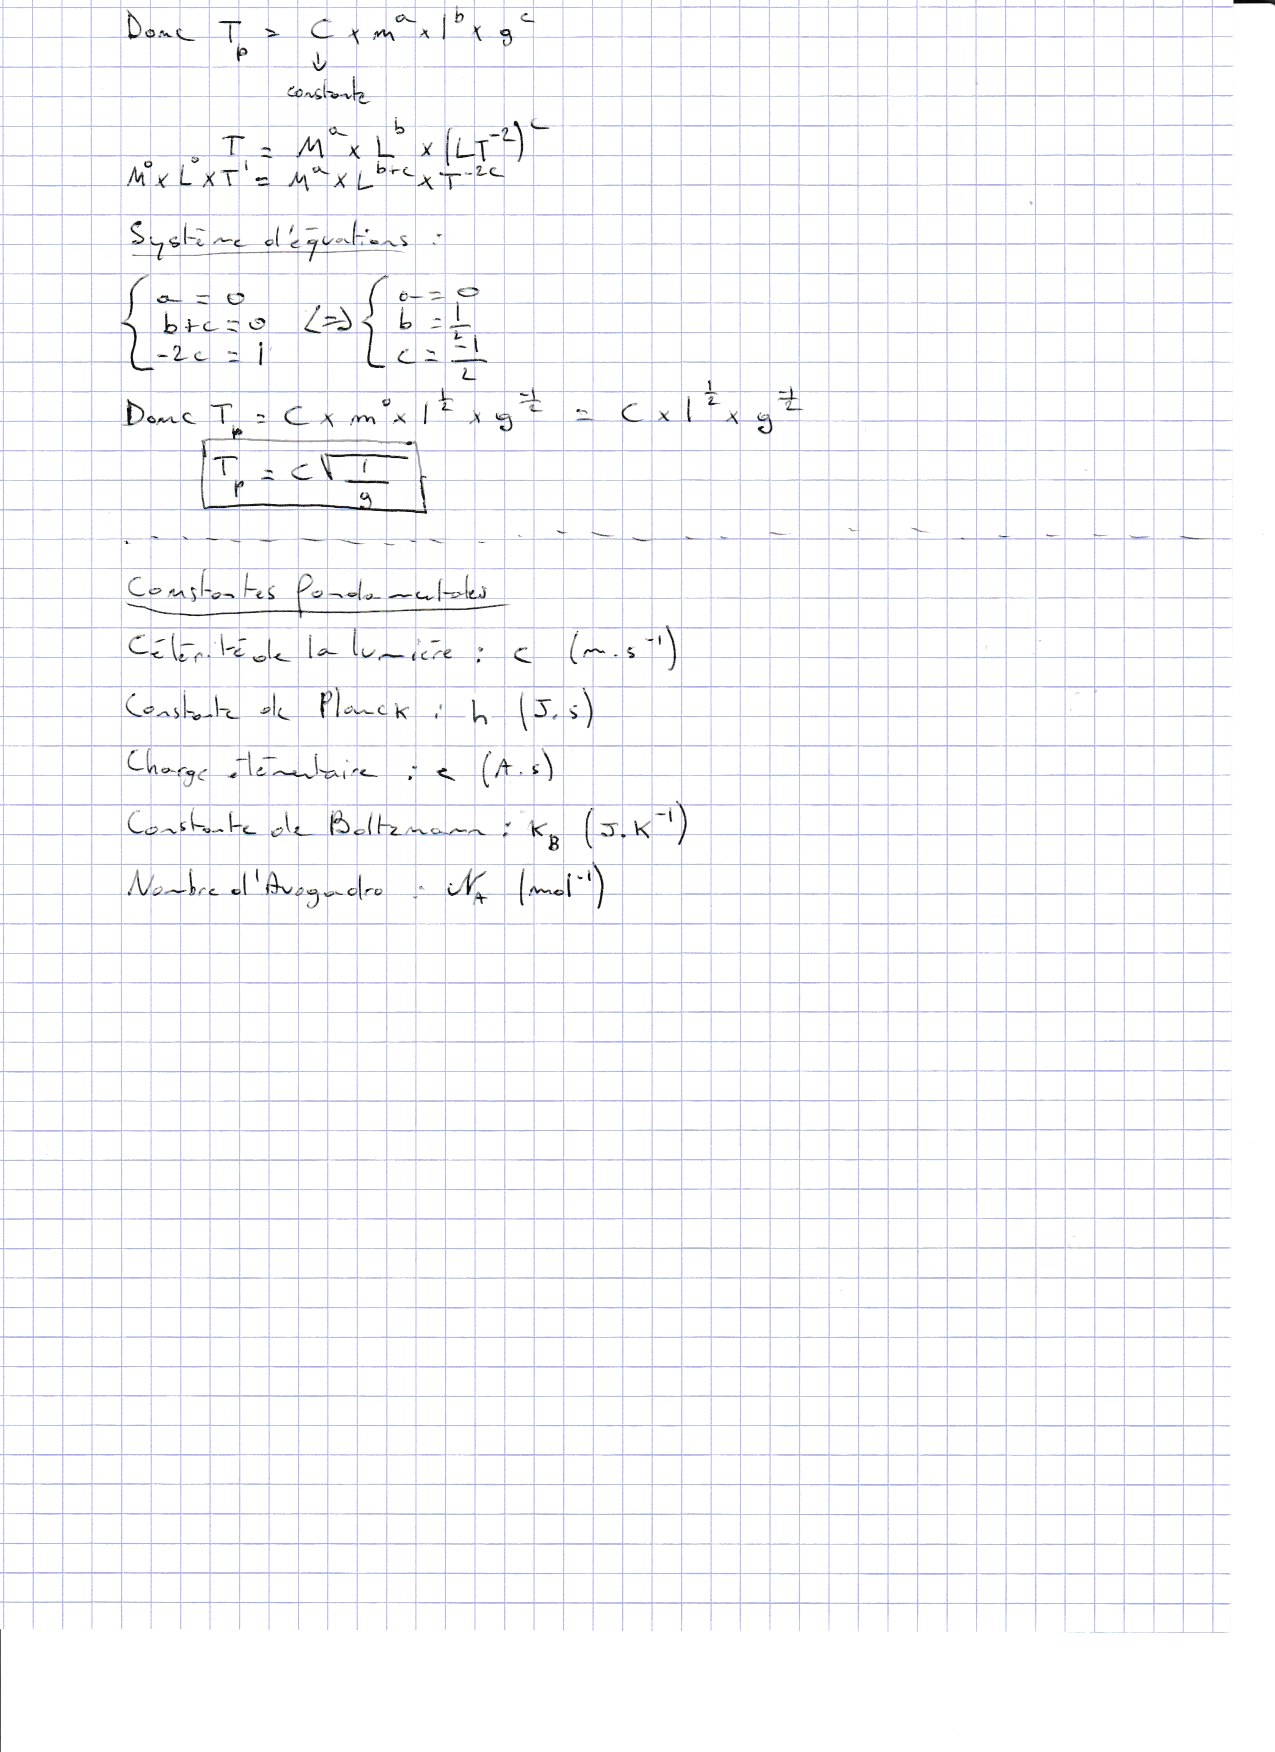 Donc T_p = C × m^a × l^b × g^c
↓
constante
T = M^a × L^b × (LT^-2)^c
M^0 × L^0 × T^1 = M^a × L^(b+c) × T^-2c
Système d'équations :
{ a = 0 ; b+c = 0 ; -2c = 1 <=> { a = 0 ; b = 1/2 ; c = -1/2
Donc T_p = C × m^0 × l^(1/2) × g^(-1/2) = C × l^(1/2) × g^(-1/2)
T_p = C √(l/g)
Constantes fondamentales
Célérité de la lumière : c (m.s^-1)
Constante de Planck : h (J.s)
Charge élémentaire : e (A.s)
Constante de Boltzmann : K_B (J.K^-1)
Nombre d'Avogadro : N_A (mol^-1)